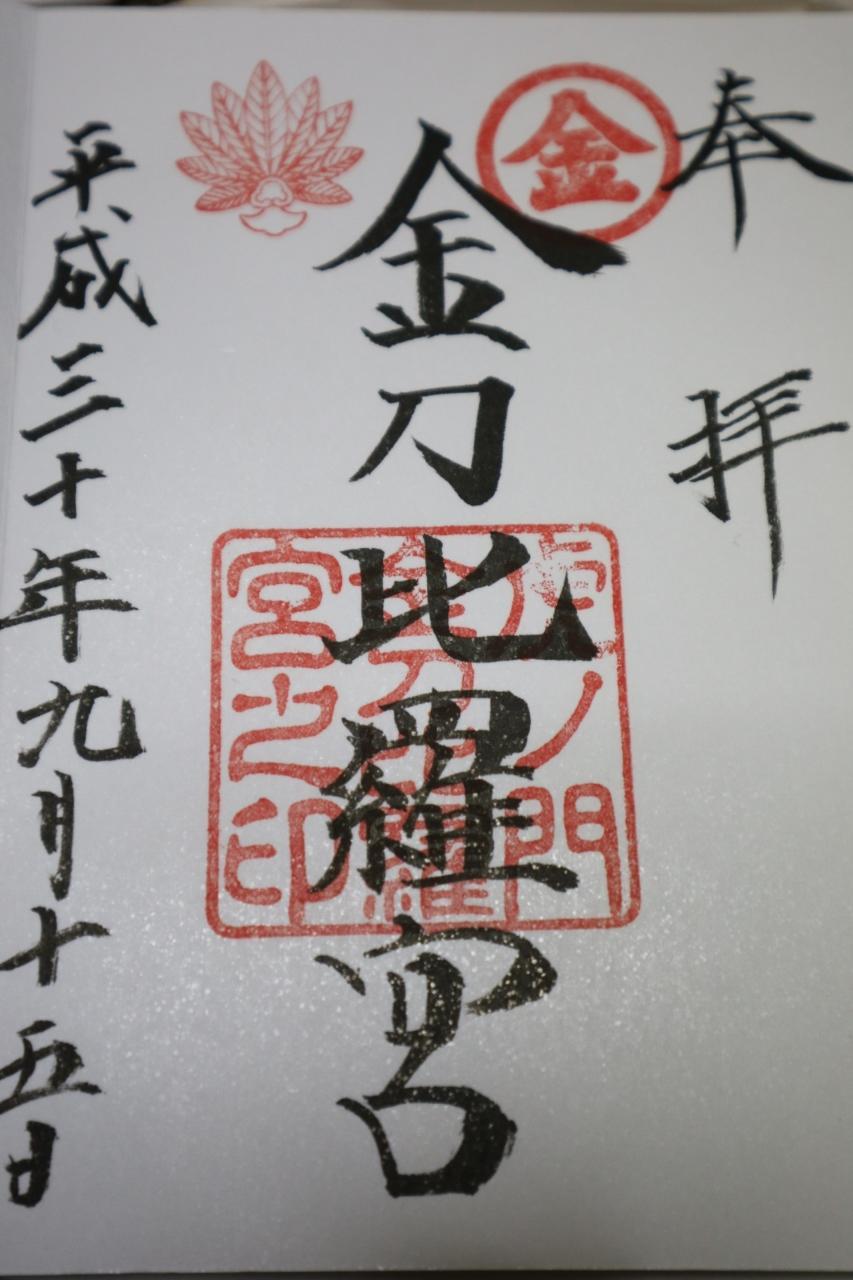 奉拝
金
金刀比羅宮
虎ノ門
金刀比羅
宮之印
平成三十年九月十五日